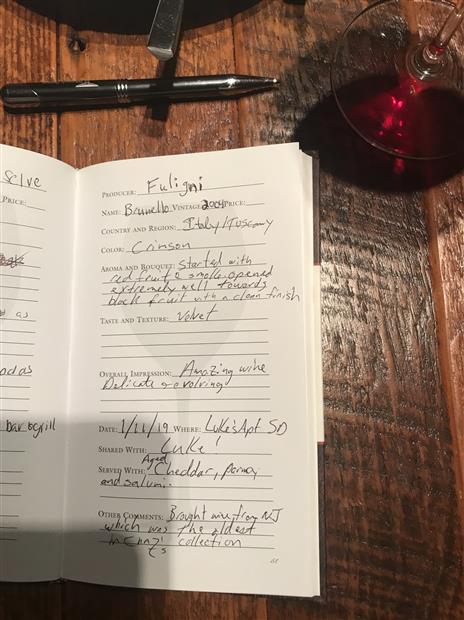 selve
PRICE:
as
bar & grill
PRODUCER: Fuligni
NAME: Brunello VINTAGE: 2004 PRICE:
COUNTRY AND REGION: Italy/Tuscany
COLOR: Crimson
AROMA AND BOUQUET: Started with
red fruit & smoke opened
extremely well towards
black fruit with a clean finish
TASTE AND TEXTURE: Velvet
OVERALL IMPRESSION: Amazing wine
Delicate & evolving
DATE: 1/11/19 WHERE: Luke's Apt SD
SHARED WITH: Luke!
SERVED WITH: Aged Cheddar,
and salumi.
OTHER COMMENTS: Brought wine from NJ
which was the oldest
in collection